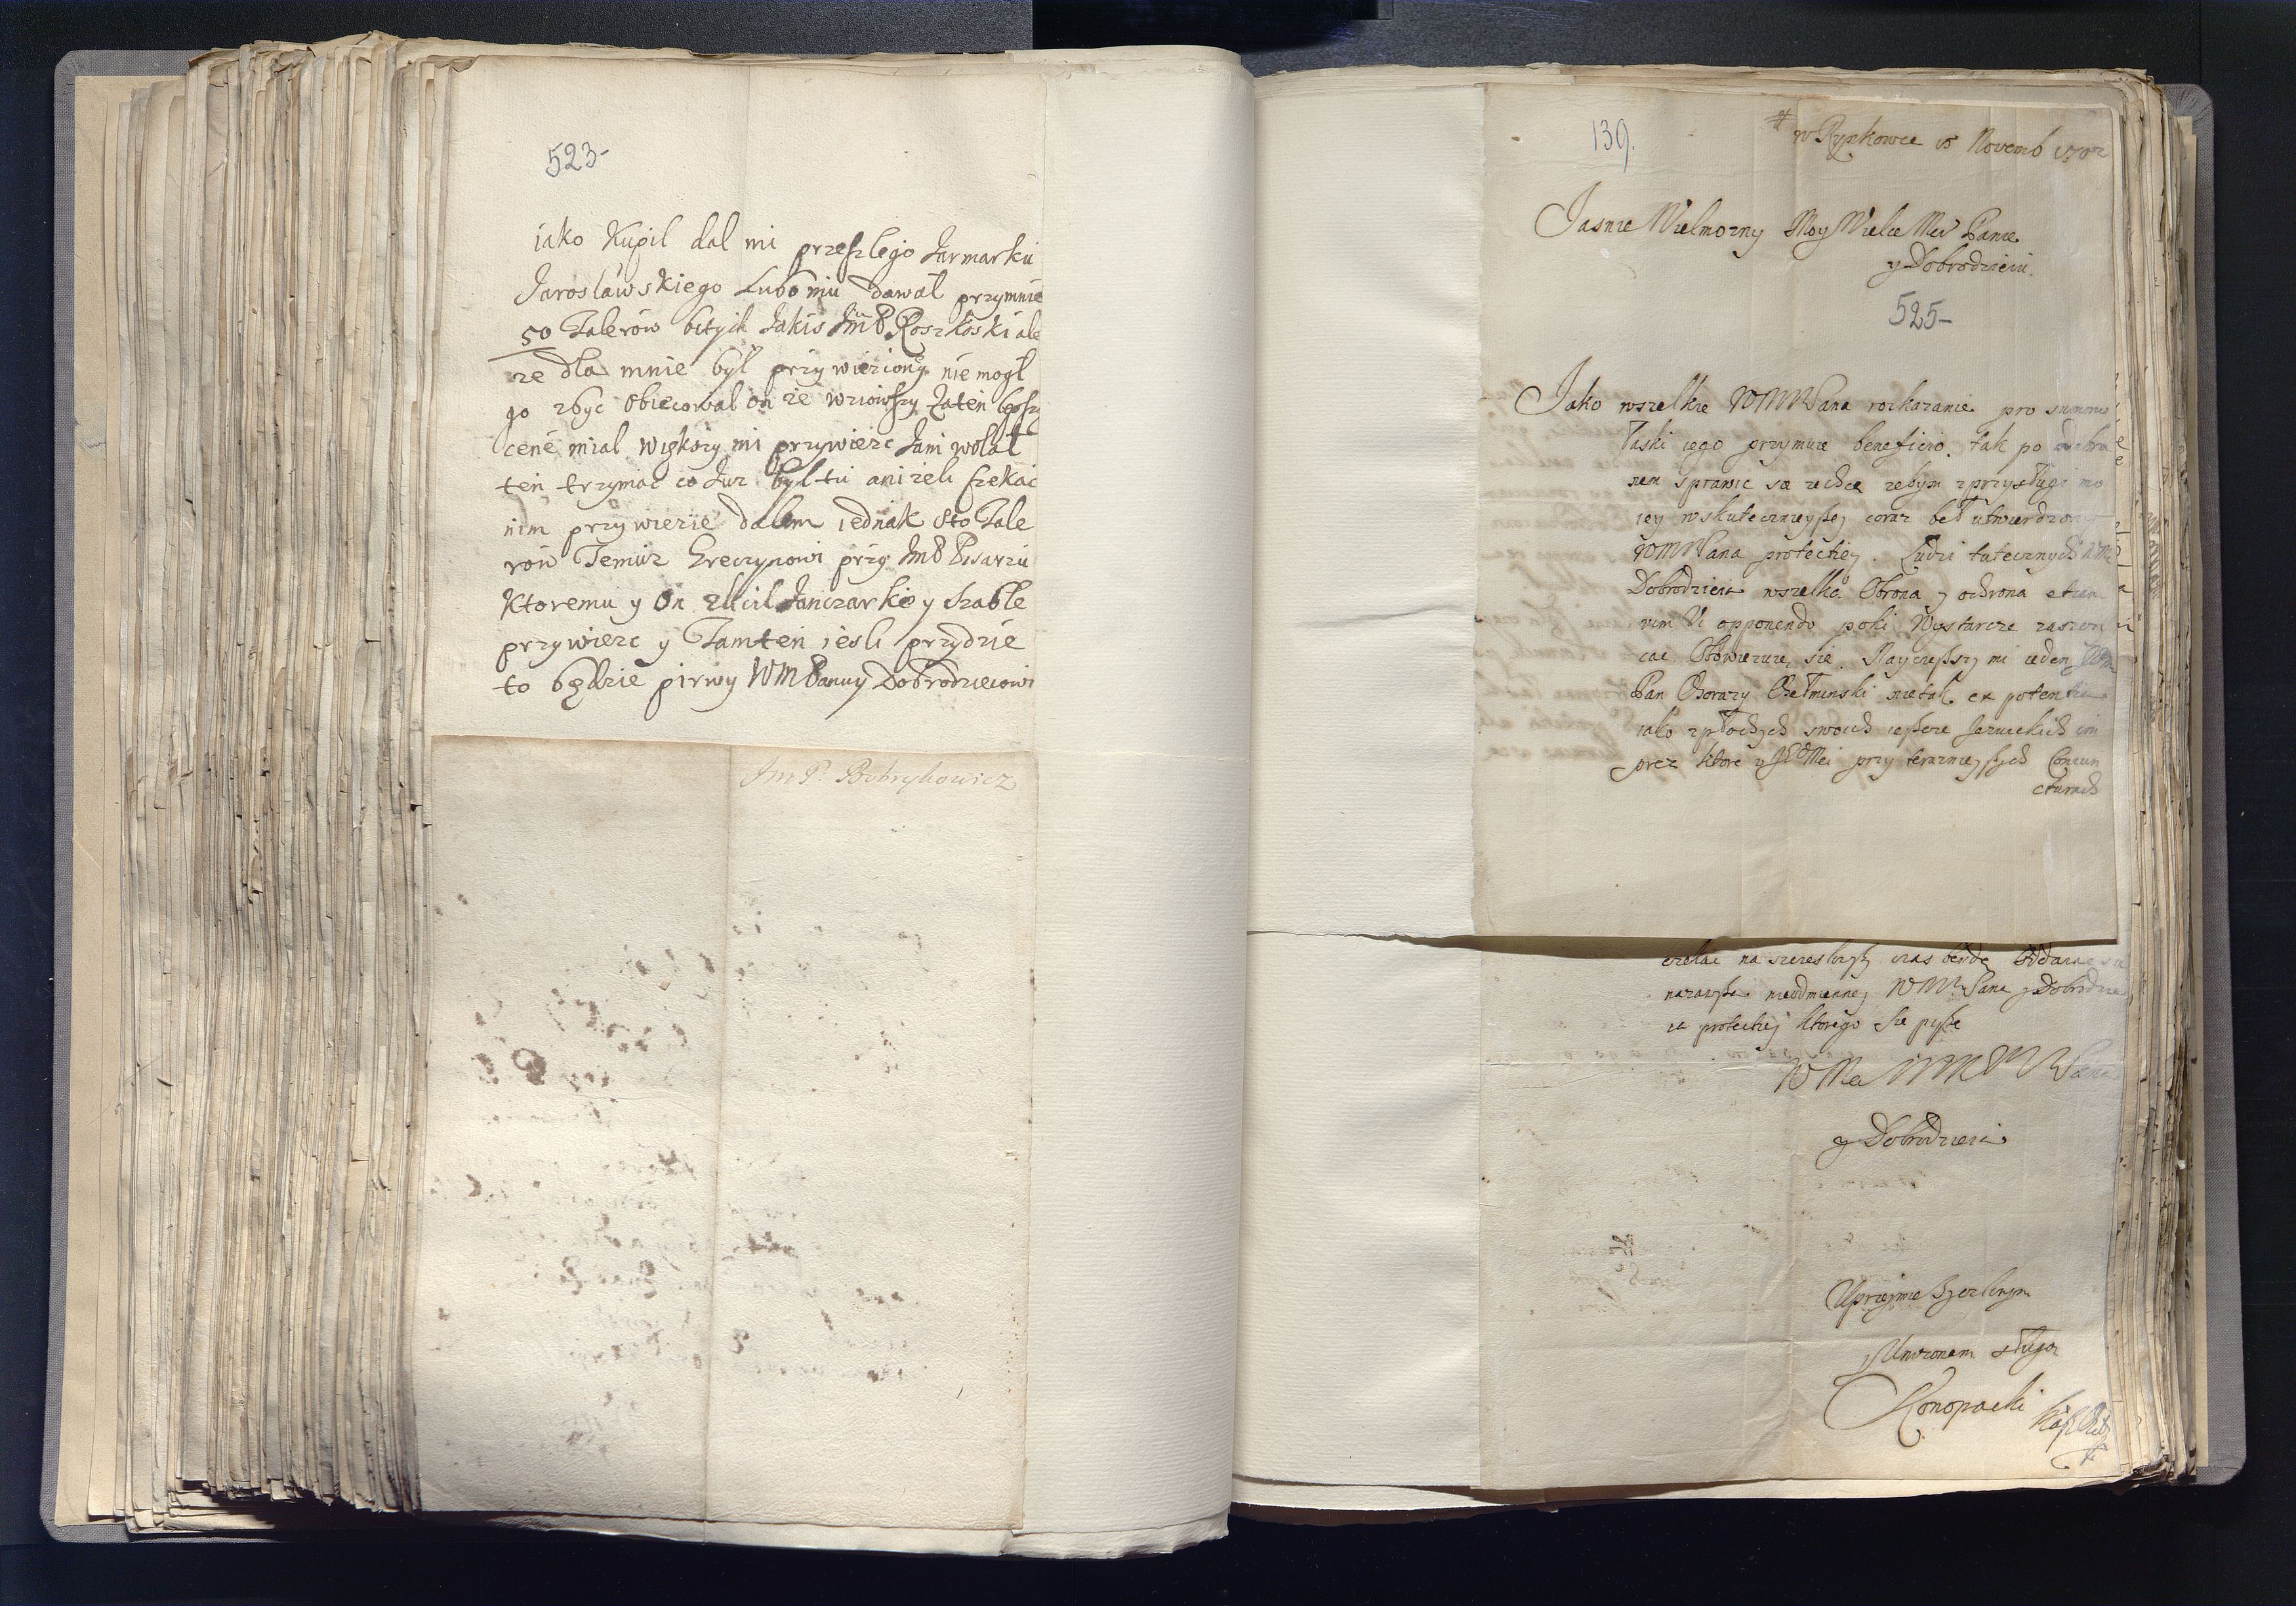 523-
iako Kupil dal mi przeszlego Jarmarku
Jaroslawskiego Lubo mu dawal przymnie
50 Talerow bitych Jakis JmP Roszkoski ale
ze dla mnie był przywieziony nie mogł
go zbyc obiecowal on ze wziowszy Zaten lepszy
cene mial większy mi przywiezc Jam wolał
ten trzymac co Juz był tu anizeli czekac
nim przywiezie dalem iednak sto Tale
row Temuz Greczynowi przy JmP Pisarzu
Ktoremu y On zlicil Janczarkie y Szable
przywiezc y Tamten iesli przydzie
to będzie pirwy WMPanuy Dobrodzieiowi
JmP. Bobrykowicz
139.
w Rynkowce 15 Novemb 1702
Jasnie Wielmozny Moy Wielce Mci Panie
y Dobrodzieiu.
525-
Jako wszelkie WMMPana rozkazanie pro summo
łaski iego przymuie beneficio. tak po
nem sprawic sa zechce zebym z przysługi mo
iey w skutecznieyszey coraz beł utwierdzony
WMMPana protectiey. Ludzi tutecznych WM
Dobrodzieia wszelko Obrona y ochrona etiam
vim Vi opponendo poki Wystarcze zaszczy
cac Obowiezuie sie. Nayciezszy mi ieden
Pan Chorazy Chełminski nie tak ex potentia
iako z płochych swoich ieszcze Jezuickich im
prez ktore y przy teraznieyszych Coniun
cturach
czekac na szczesliwszy czas bede Oddaiac sie
nazawsze nieodmienney WMMPana y Dobrodzie
ia protectiey ktorego sie pisze
y Dobrodzieia
Uprzeymie zyczliwym
y Unizonem sługa
Konopacki